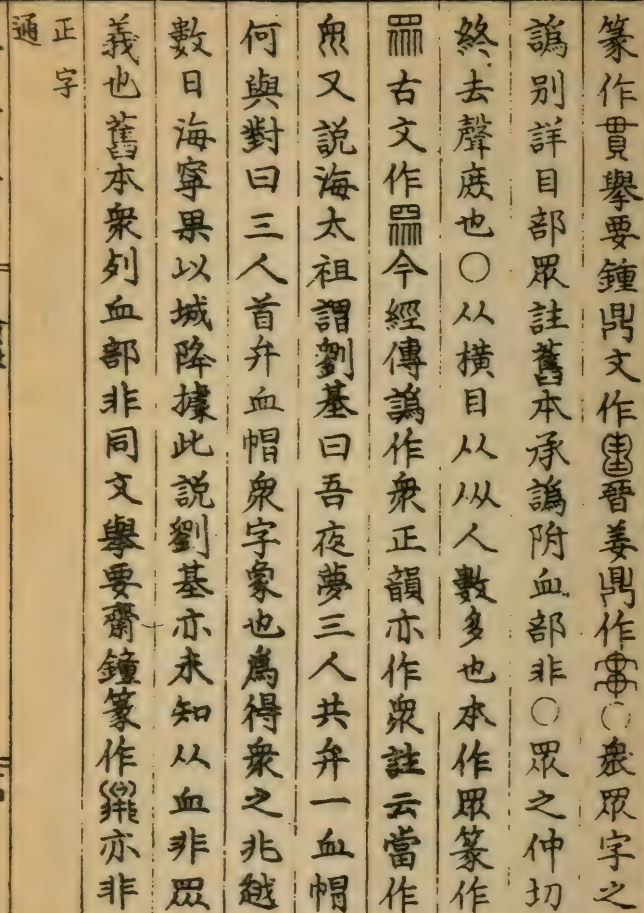 篆作貫舉要鍾鼎文作晉姜鼎作○衆眾字之
譌別詳目部眾註舊本承譌附血部非○眾之仲切
終去聲庶也○从橫目从㐺人數多也本作眾篆作
古文作今經傳譌作衆正韻亦作衆註云當作
又說海太祖謂劉基曰吾夜夢三人共弁一血帽
何與對曰三人首弁血帽衆字象也爲得衆之兆越
數日海寧果以城降據此說劉基亦未知从血非眾
義也舊本衆列血部非同文舉要齋鐘篆作亦非
正字
通